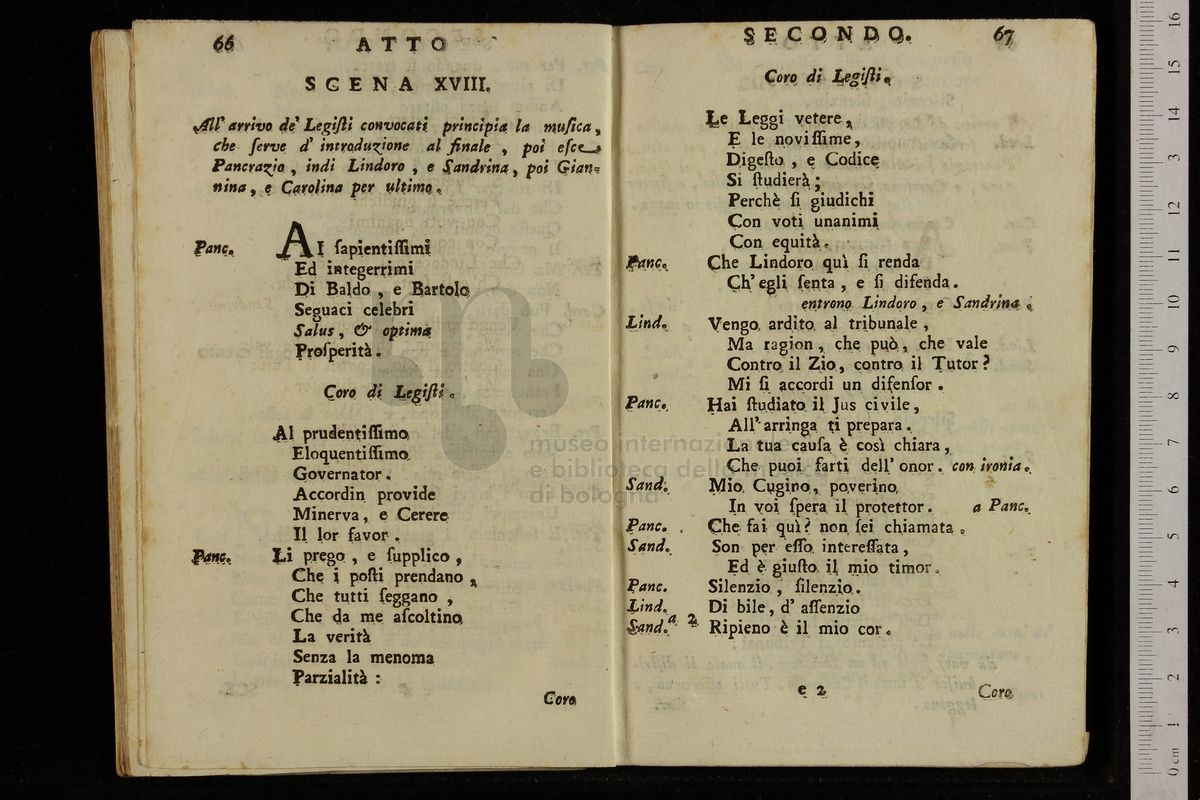 66 ATTO
SCENA XVIII.
All' arrivo de' Legiſti convocati principia la muſica,
che ſerve d' introduzione al finale, poi eſce
Pancrazio, indi Lindoro, e Sandrina, poi Gian-
nina, e Carolina per ultimo.
Panc. AI ſapientiſſimi
Ed integerrimi
Di Baldo, e Bartolo
Seguaci celebri
Salus, & optima
Proſperità.
Coro di Legiſti.
Al prudentiſſimo
Eloquentiſſimo
Governator.
Accordin provide
Minerva, e Cerere
Il lor favor.
Panc. Li prego, e ſupplico,
Che i poſti prendano,
Che tutti ſeggano,
Che da me aſcoltino
La verità
Senza la menoma
Parzialità:
Coro
SECONDO. 67
Coro di Legiſti.
Le Leggi vetere,
E le noviſſime,
Digeſto, e Codice
Si ſtudierà;
Perchè ſi giudichi
Con voti unanimi
Con equità.
Panc. Che Lindoro quì ſi renda
Ch' egli ſenta, e ſi difenda.
entrono Lindoro, e Sandrina.
Lind. Vengo ardito al tribunale,
Ma ragion, che può, che vale
Contro il Zio, contro il Tutor?
Mi ſi accordi un difenſor.
Panc. Hai ſtudiato il Jus civile,
All' arringa ti prepara.
La tua cauſa è così chiara,
Che puoi farti dell' onor. con ironia.
Sand. Mio Cugino, poverino
In voi ſpera il protettor. a Panc.
Panc. Che fai quì? non ſei chiamata.
Sand. Son per eſſo intereſſata,
Ed è giuſto il mio timor.
Panc. Silenzio, ſilenzio.
Lind. Di bile, d' aſſenzio
Sand. a 2 Ripieno è il mio cor.
e 2 Coro
museo internazionale
e biblioteca della musica
di bologna
0 cm 1 2 3 4 5 6 7 8 9 10 11 12 13 14 15 16